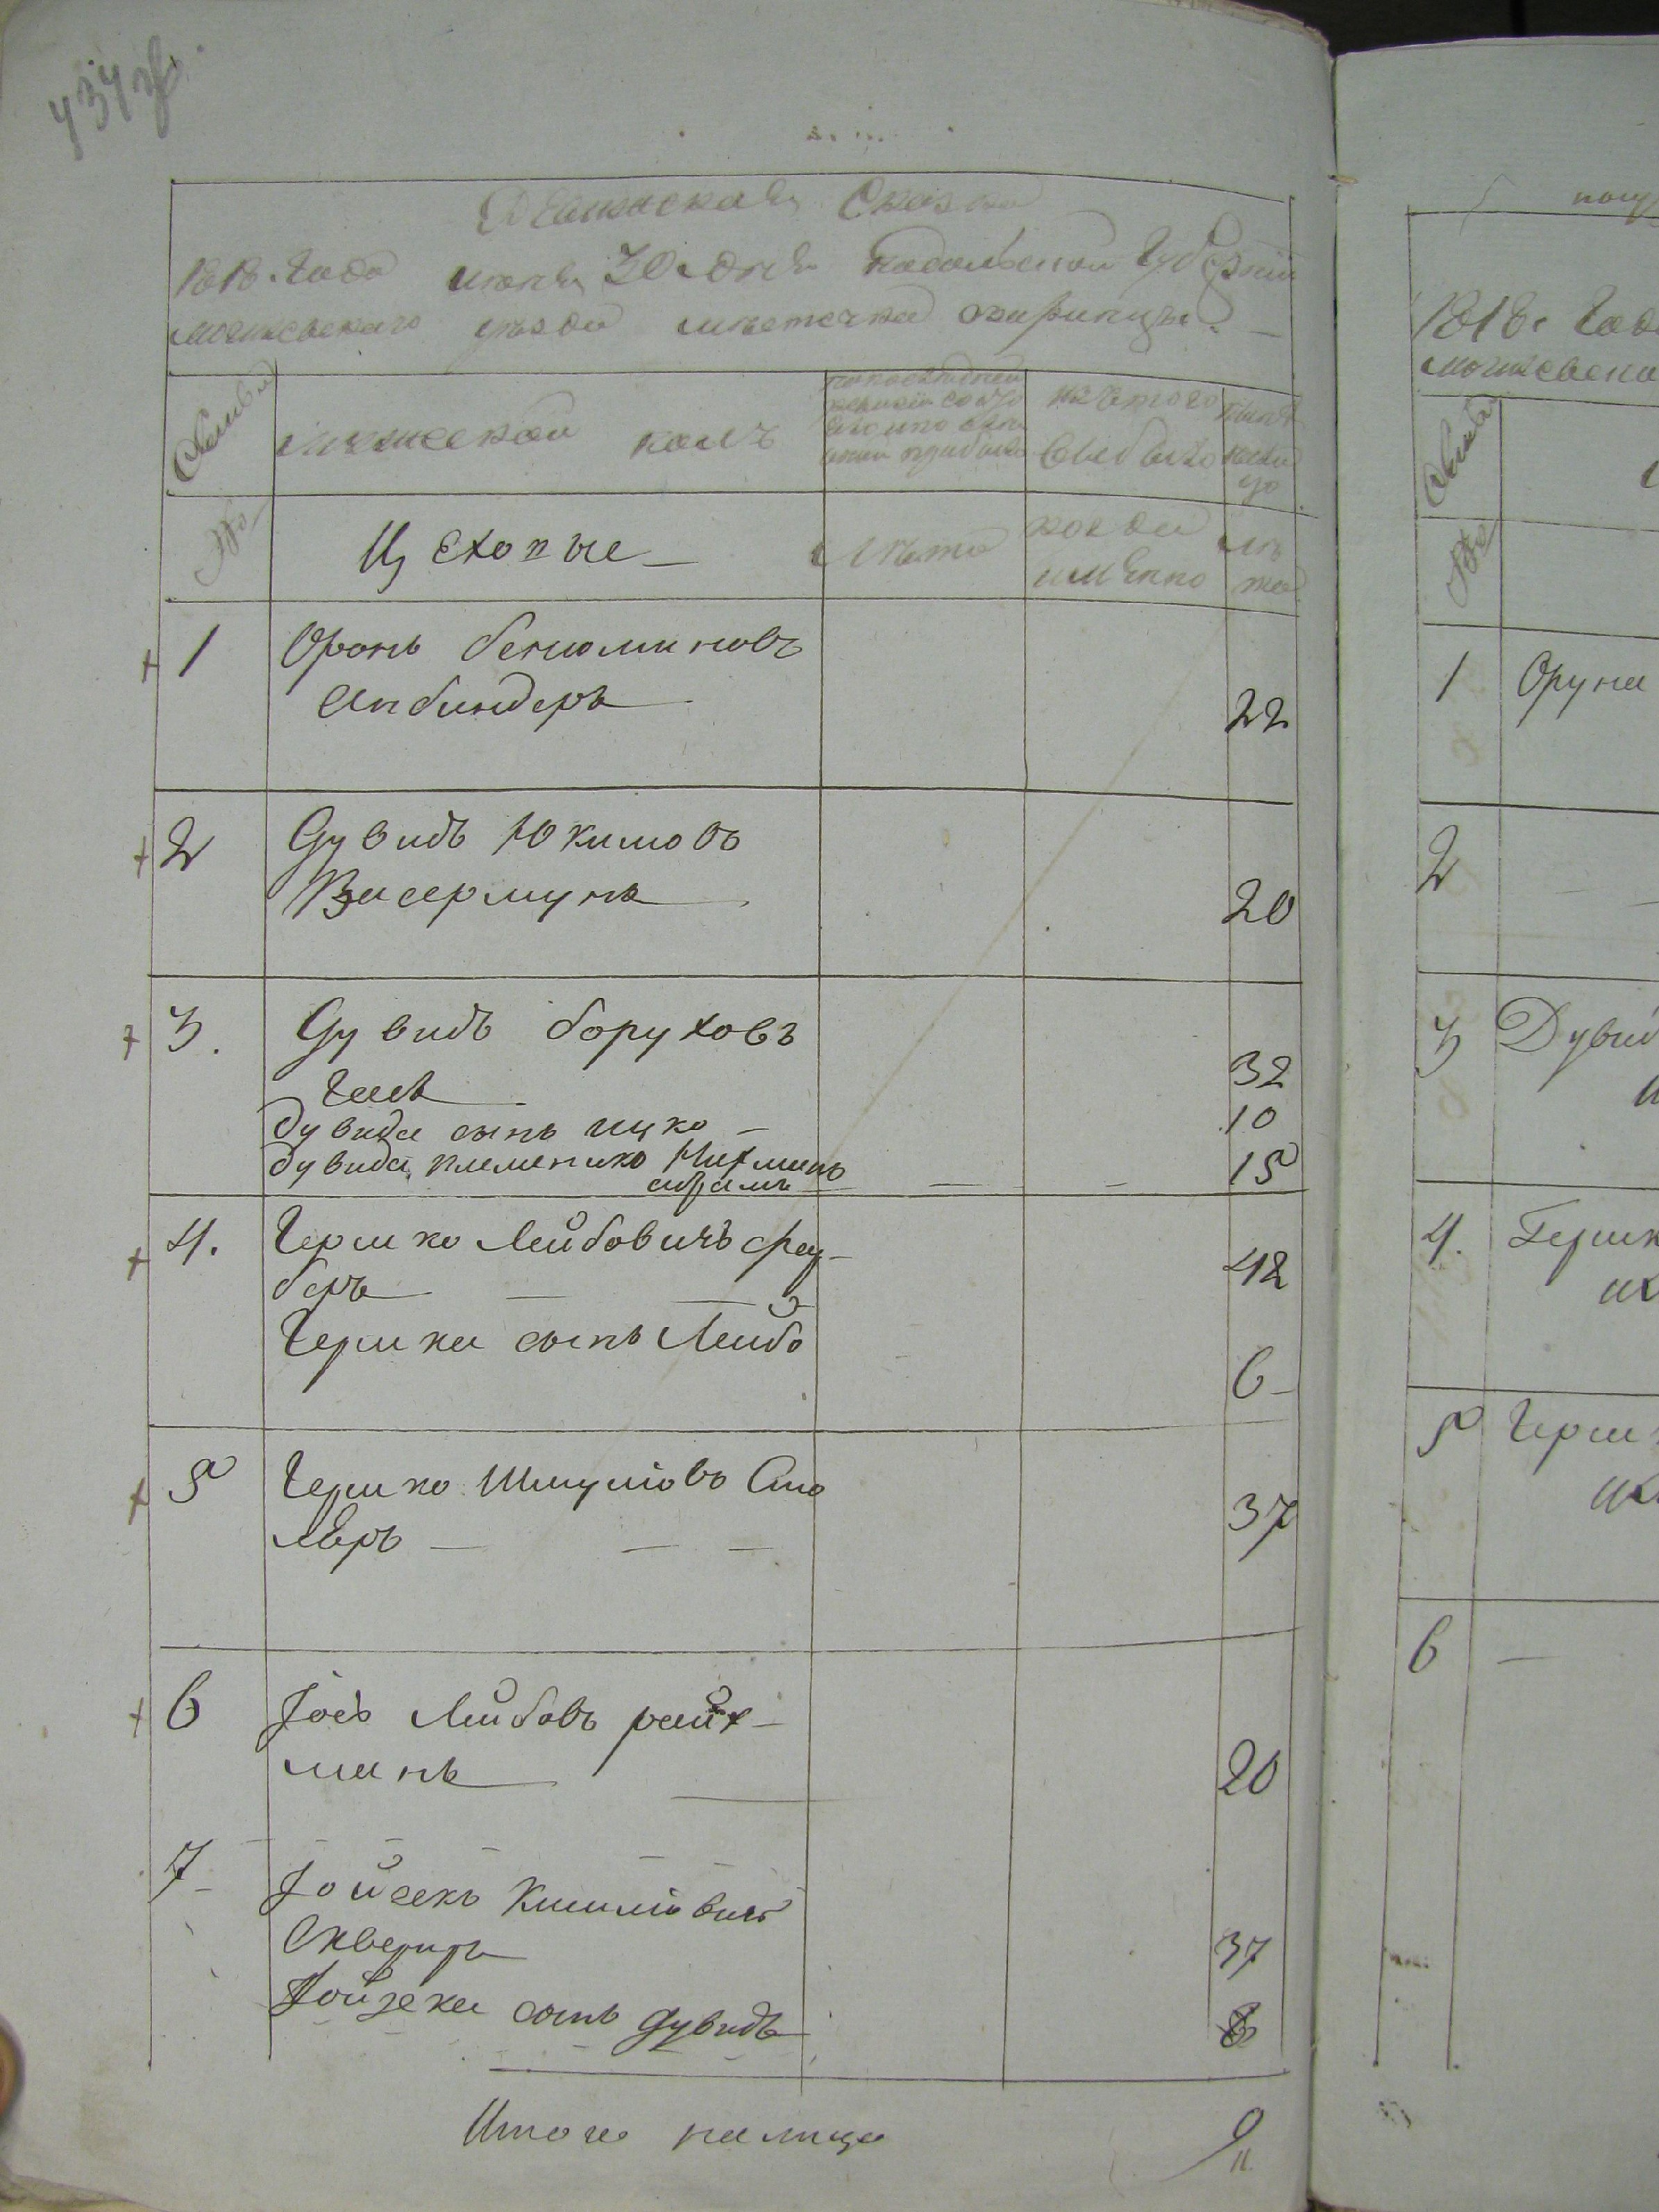 434 об.
Ревижская Сказка
1818. Года июня 30 дня подольской Губернiи
могилевскаго уезда местечка озаринцы. —
Семьи
мужеской полъ
по последней
ревизiи состо
яло и по оной
изъ того
выбыло
ныне
на ли
цо
№
Цеховые —
лета
когда
именно
ле
та
1 Оронь бениоминовъ
Апбиндеръ 22
2 Дувидъ Юкимовъ
Васермунъ 20
3. Дувидъ боруховъ
Гасъ 32
дувида сынъ ицко — 10
дувида племенико Нахманъ 15
абрамъ — —
4. Гершко Лейбовичъ фау-
беръ — — 42
Гершка сынъ Лейбо
6 —
5 Гершко Шмулiовъ Сто
леръ — — — 37
6 Iось Лейбовъ рейх-
манъ 20
7 — Iойзекъ Кишлiовичъ
Скверир 37
Iойзека сынъ дувидъ 8
Итого налицо 9
11
1818. Года
могилевска
Семьи
№
1 Оруна
2
3 Дувид
4. Гершк
5 Гершк
6 —